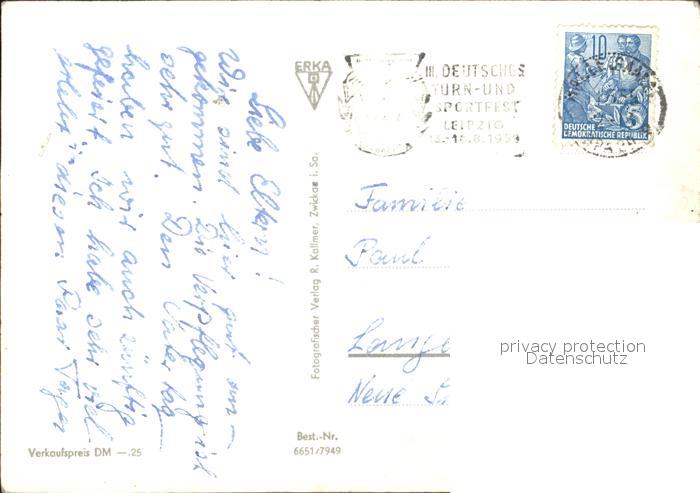 Liebe Eltern!
Wir sind hier gut an-
gekommen. Die Verpflegung ist
sehr gut. Den Vatertag
haben wir auch zünftig
gefeiert. Ich habe sehr viel
erlebt in diesen Tagen
ERKA
Fotografischer Verlag R. Kallmer, Zwickau i. Sa.
III. DEUTSCHES
TURN-UND
SPORTFEST
LEIPZIG
13.-16.8.1959
10
5
DEUTSCHE
DEMOKRATISCHE REPUBLIK
Familie
Paul
Lange
Neue
privacy protection
Datenschutz
Verkaufspreis DM —.25
Best.-Nr.
6651/7949